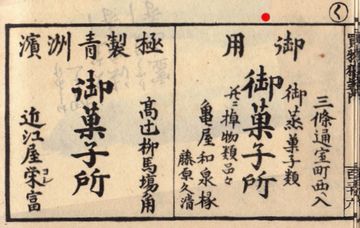 く
御用
三條通室町西入
御蒸菓子類
御菓子所
并ニ棹物類品々
亀屋和泉掾
藤原久清
極製青洲濱
高辻柳馬場角
御菓子所
近江屋栄富